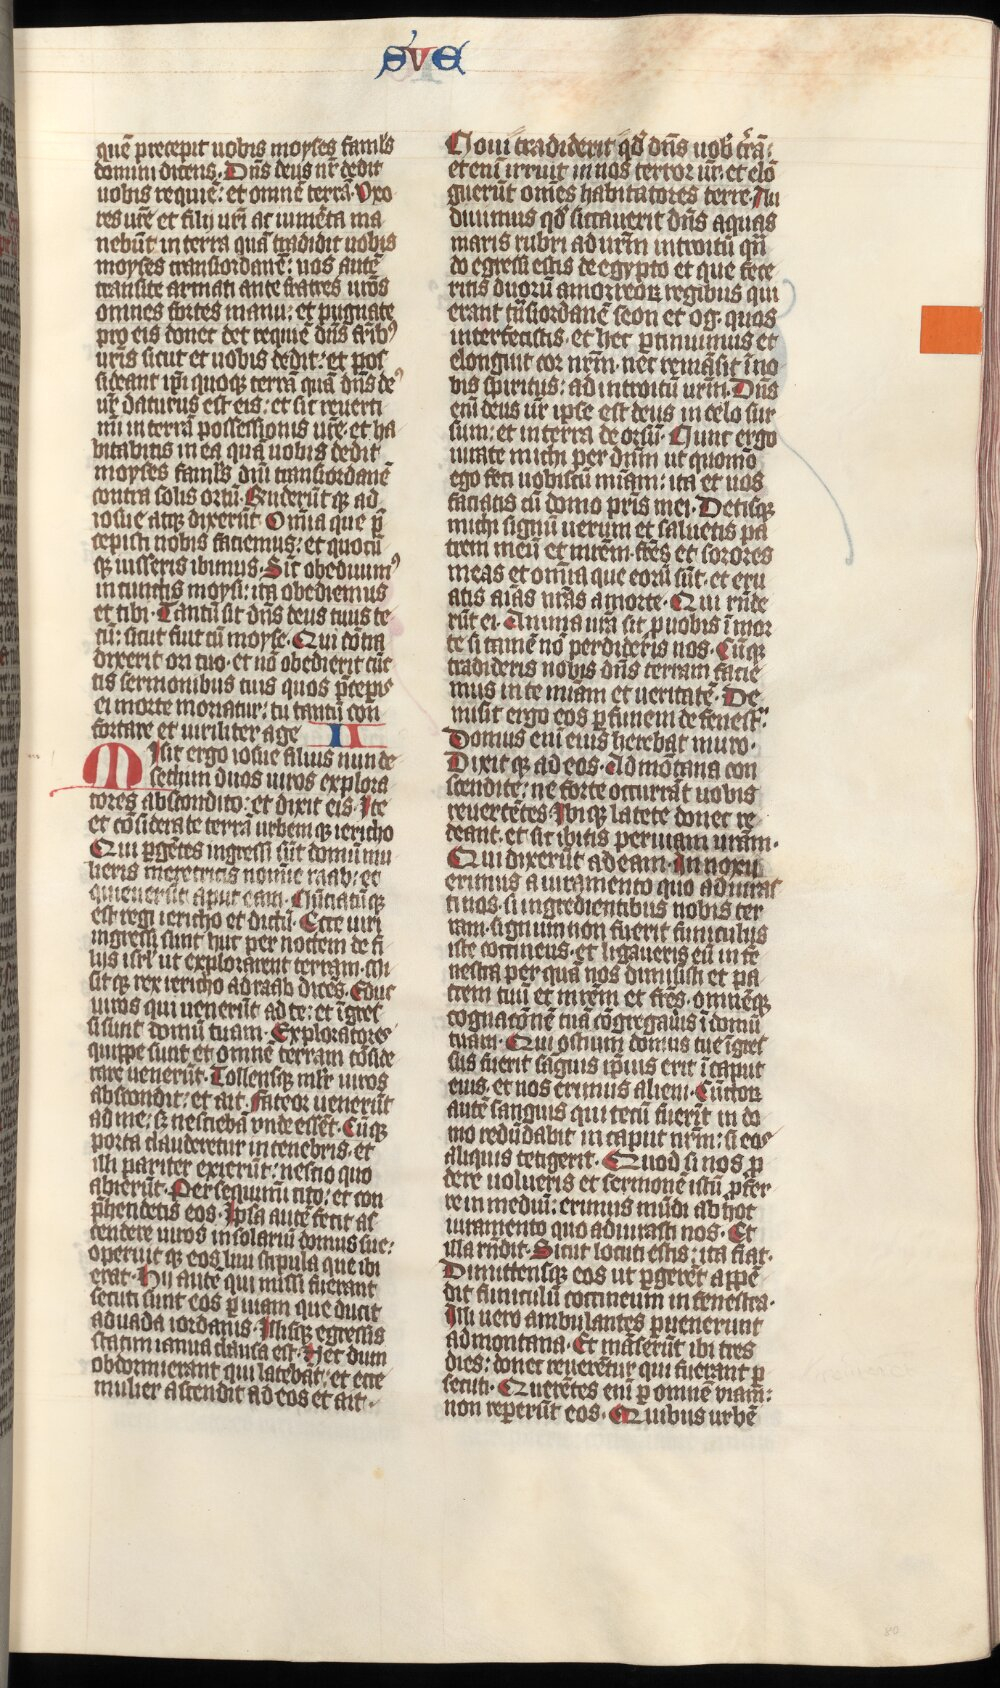 eve
quē precepit uobis moyses famls
domini dicens. Dn̄s deus nr̄ dedit
uobis requiē: et omnē terrā. Uxo
res ur̄e et filij ur̄i ac iumēta ma
nebūt in terra quā tradidit uobis
moyses transiordanē: uos autē
transite armati ante fratres ur̄os
omnes fortes manu: et pugnate
pro eis donec det requiē dn̄s fr̄ibꝰ
ur̄is sicut et uobis dedit: et pos
sideant ip̄i quoqꝫ terrā quā dn̄s deꝰ
ur̄ daturus est eis: et sic reuerti
mī in terrā possessionis ur̄e. et ha
bitabitis in ea quā uobis dedit
moyses famls dn̄i transiordanē
contra solis ortū. Responderūtqꝫ ad
iosue atqꝫ dixerūt. Om̄ia que p̄
cepisti nobis faciemus: et quocū
qꝫ iusseris ibimus. Sic obediuimꝰ
in cunctis moysi: ita obediemus
et tibi. Tantū sit dn̄s deus tuus te
cū: sicut fuit cū moyse. Qui cōtra
dixerit ori tuo. et nō obedierit cūc
tis sermonibus tuis quos p̄cepis
ei morte moriatur: tu tantū con
fortare et uiriliter age II
Misit ergo iosue filius nun de
sethim duos uiros explora
tores abscondito: et dixit eis. Ite
et cōsiderate terrā urbemqꝫ iericho
Qui ꝑgētes ingressi sūt domū mu
lieris meretricis nomīe raab: et
quieuerūt aput eam. Nūciatūqꝫ
est regi iericho et dictū. Ecce uiri
ingressi sunt huc per noctem de fi
lijs isrl̄ ut explorarent terram. Mi
sitqꝫ rex iericho ad raab dicēs. Educ
uiros qui uenerūt ad te: et īgres
si sunt domū tuam. Exploratores
quippe sunt et omnē terram cōside
rare uenerūt. Tollensqꝫ ml̄r uiros
abscondit: et ait. Fateor uenerūt
ad me: sꝫ nesciebā unde essēt. Cūqꝫ
porta clauderetur in tenebris. et
illi pariter exierūt: nescio quo
abierūt. Persequimī cito: et con
p̄hendetis eos. Ipsa autē fecit as
cendere uiros in solariū domus sue:
operuitqꝫ eos lini stipula que ibi
erat. Hij autē qui missi fuerant
secuti sunt eos ꝑ uiam que ducit
ad uada iordanis. Illisqꝫ egressis
statim ianua clausa est. Nec dum
obdormierant qui latebāt: et ecce
mulier ascendit ad eos et ait.
Noui tradiderit qd̄ dn̄s uob̄ t̄rā:
etenī irruit in nos terror ur̄. et elā
guerūt om̄es habitatores terre. Au
diuimus qd̄ siccauerit dn̄s aquas
maris rubri ad ur̄m introitū qn̄
do egressi estis de egypto et que fece
ritis duorū amorreoꝝ regibus qui
erant trāsiordanē seon et og. quos
interfecistis. et hec ꝑtimuimus et
elonguit cor nr̄m. nec remāsit ī no
bis spiritus: ad introitū ur̄m. Dn̄s
enī deus ur̄ ipse est deus in celo sur
sum: et in terra deorsū. Nunc ergo
iurate michi per dn̄m ut quomō
ego feci uobiscū mīam: ita et uos
faciatis cū domo pr̄is mei. Detisqꝫ
michi signū uerum et saluetis pa
trem meū et mr̄em. fr̄es et sorores
meas et om̄ia que eorū sūt. et eru
atis aīas nr̄as a morte. Qui rn̄de
rūt ei. Anima nr̄a sit ꝓ uobis ī mor
te si tamē nō perdideris nos. Cūqꝫ
tradideris nobis dn̄s terram facie
mus in te mīam et ueritatē. De
misit ergo eos ꝑ funem de fenest̄
Domus enī eius herebat muro.
Dixitqꝫ ad eos. Ad mōtana con
scendite: ne forte occurrāt uobis
reuertētes. Ibiqꝫ latete donec re
deant. et sic ibitis per uiam ur̄am.
Qui dixerūt ad eam. Innoxij
erimus a iuramento quo adiuras
ti nos. si ingredientibus nobis ter
ram. signum non fuerit funiculus
iste coccineus. et ligaueris eū in fe
nestra per quā nos dimisisti et pa
trem tuū et mr̄em et fr̄es. omnēqꝫ
cognacōnē tuā cōgregaūis ī domū
tuam. Qui ostium domus tue īgres
sus fuerit sāguis ip̄ius erit ī caput
eius. et nos erimus alieni. Cūctoꝝ
autē sanguis qui tecū fuerīt in do
mo redūdabit in caput nr̄m: si eos
aliquis tetigerit. Quod si nos ꝓ
dere uolueris et sermonē istū p̄fer
re in mediū: erimus mūdi ab hoc
iuramento quo adiurasti nos. Et
illa rn̄dit. Sicut locuti estis: ita fiat.
Dimittensqꝫ eos ut ꝑgerēt appē
dit funiculū coccineum in fenestra.
Illi uero ambulantes ꝑuenerunt
ad montana. Et māserūt ibi tres
dies: donec reuerētur qui fuerant ꝑ
secuti. Querētes enī ꝑ omnē uiam:
non reꝑerūt eos. Quibus urbē
80